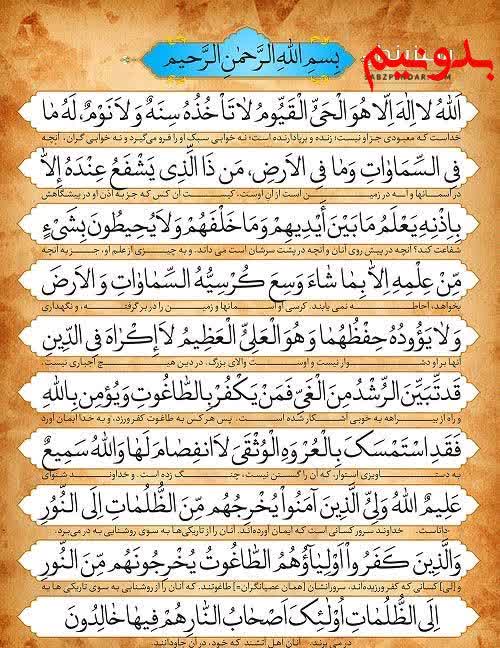 بدونیم
SABZPENDAR.COM
بِسمِ اللهِ الرَّحمٰنِ الرَّحیم
اَللهُ لا اِلهَ اِلّا هُوَ الْحَیُّ الْقَیُّومُ لا تَأخُذُهُ سِنَةٌ وَ لا نَوْمٌ، لَهُ ما
خداست که معبودی جز او نیست؛ زنده و برپادارنده است؛ نه خوابی سبک او را فرو می‌گیرد و نه خوابی گران، آنچه
فِی السَّماواتِ وَ ما فِی الاَرضِ، مَن ذَا الَّذی یَشْفَعُ عِنْدَهُ اِلّا
در آسمانها و آنچه در زمین است از آن اوست، کیست آن کس که جز به اذن او در پیشگاهش
بِاِذنِهِ یَعْلَمُ ما بَینَ أَیْدیهِم وَ ما خَلْفَهُمْ وَ لا یُحیطُونَ بِشَیْءٍ
شفاعت کند؟ آنچه در پیش روی آنان و آنچه در پشت سرشان است می داند. و به چیزی از علم او، جز به آنچه
مِّنْ عِلْمِهِ اِلاّ بِما شاءَ وَسِعَ کُرْسِیُّهُ السَّماواتِ وَ الاَرضَ
بخواهد، احاطه نمی یابند. کرسی او آسمانها و زمین را در بر گرفته، و نگهداری
وَ لا یَؤُودُهُ حِفْظُهُما وَ هُوَ الْعَلِیُّ الْعَظیمُ لا اِکْراهَ فِی الدّینِ
آنها بر او دشوار نیست و اوست والای بزرگ، در دین هیچ اجباری نیست
قَد تَّبَیَّنَ الرُّشْدُ مِنَ الْغَیِّ فَمَنْ یَکْفُرْ بِالطّاغُوتِ وَ یُؤمِن بِاللهِ
و راه از بیراهه به خوبی آشکار شده است. پس هر کس به طاغوت کفر ورزد، و به خدا ایمان آورد
فَقَدِ اسْتَمْسَکَ بِالْعُرْوَةِ الْوُثْقیٰ لاَ انفِصامَ لَها وَ اللهُ سَمیعٌ
به دستاویزی استوار، که آن را گسستن نیست، چنگ زده است. و خداوند شنوای
عَلیمٌ اللهُ وَلِیُّ الَّذینَ آمَنُواْ یُخْرِجُهُم مِّنَ الظُّلُماتِ اِلَی النُّورِ
داناست. خداوند سرور کسانی است که ایمان آورده‌اند. آنان را از تاریکی‌ها به سوی روشنایی به در می‌برد.
وَالَّذینَ کَفَرُواْ اَوْلِیاؤُهُمُ الطّاغُوتُ یُخْرِجُونَهُم مِّنَ النُّورِ
و [لی] کسانی که کفر ورزیده‌اند، سرورانشان [همان عصیانگران=] طاغوتند، که آنان را از روشنایی به سوی تاریکی ها به
اِلَی الظُّلُماتِ اُوْلٰئِکَ اَصْحابُ النّارِ هُم فیها خالِدُونَ
در می برند. آنان اهل آتشند که خود، در آن جاودانند.